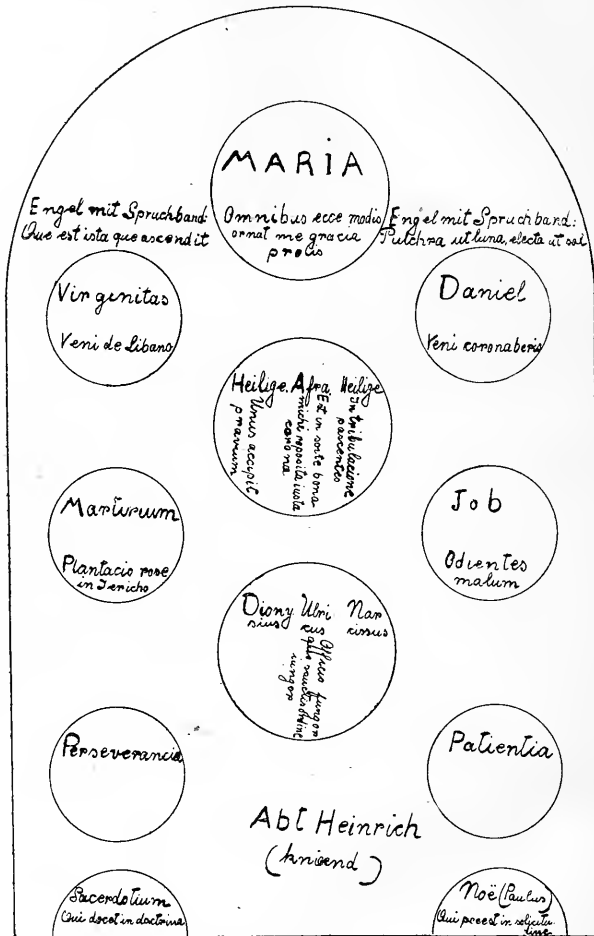 MARIA
Omnibus ecce modis
ornat me gracia
prolis
Engel mit Spruchband:
Que est ista que ascendit
Engel mit Spruchband:
Pulchra ut luna, electa ut sol
Virginitas
Veni de Libano
Daniel
Veni coronaberis
Heilige. Afra. Heilige
Unus accipit
pravium
Est in sorte bona
michi reposita iusta
corona
In tribulacione
pacientes
Marturium
Plantacio rose
in Jericho
Job
Odientes
malum
Diony
sius
Ulri
cus
Nar
cissus
Officio fungor
quo sanctis ordine
iungor
Perseverancia
Patientia
Abt Heinrich
(kniend)
Sacerdotium
Qui docet in doctrina
Noë (Paulus)
Qui preest in solicitu
dine